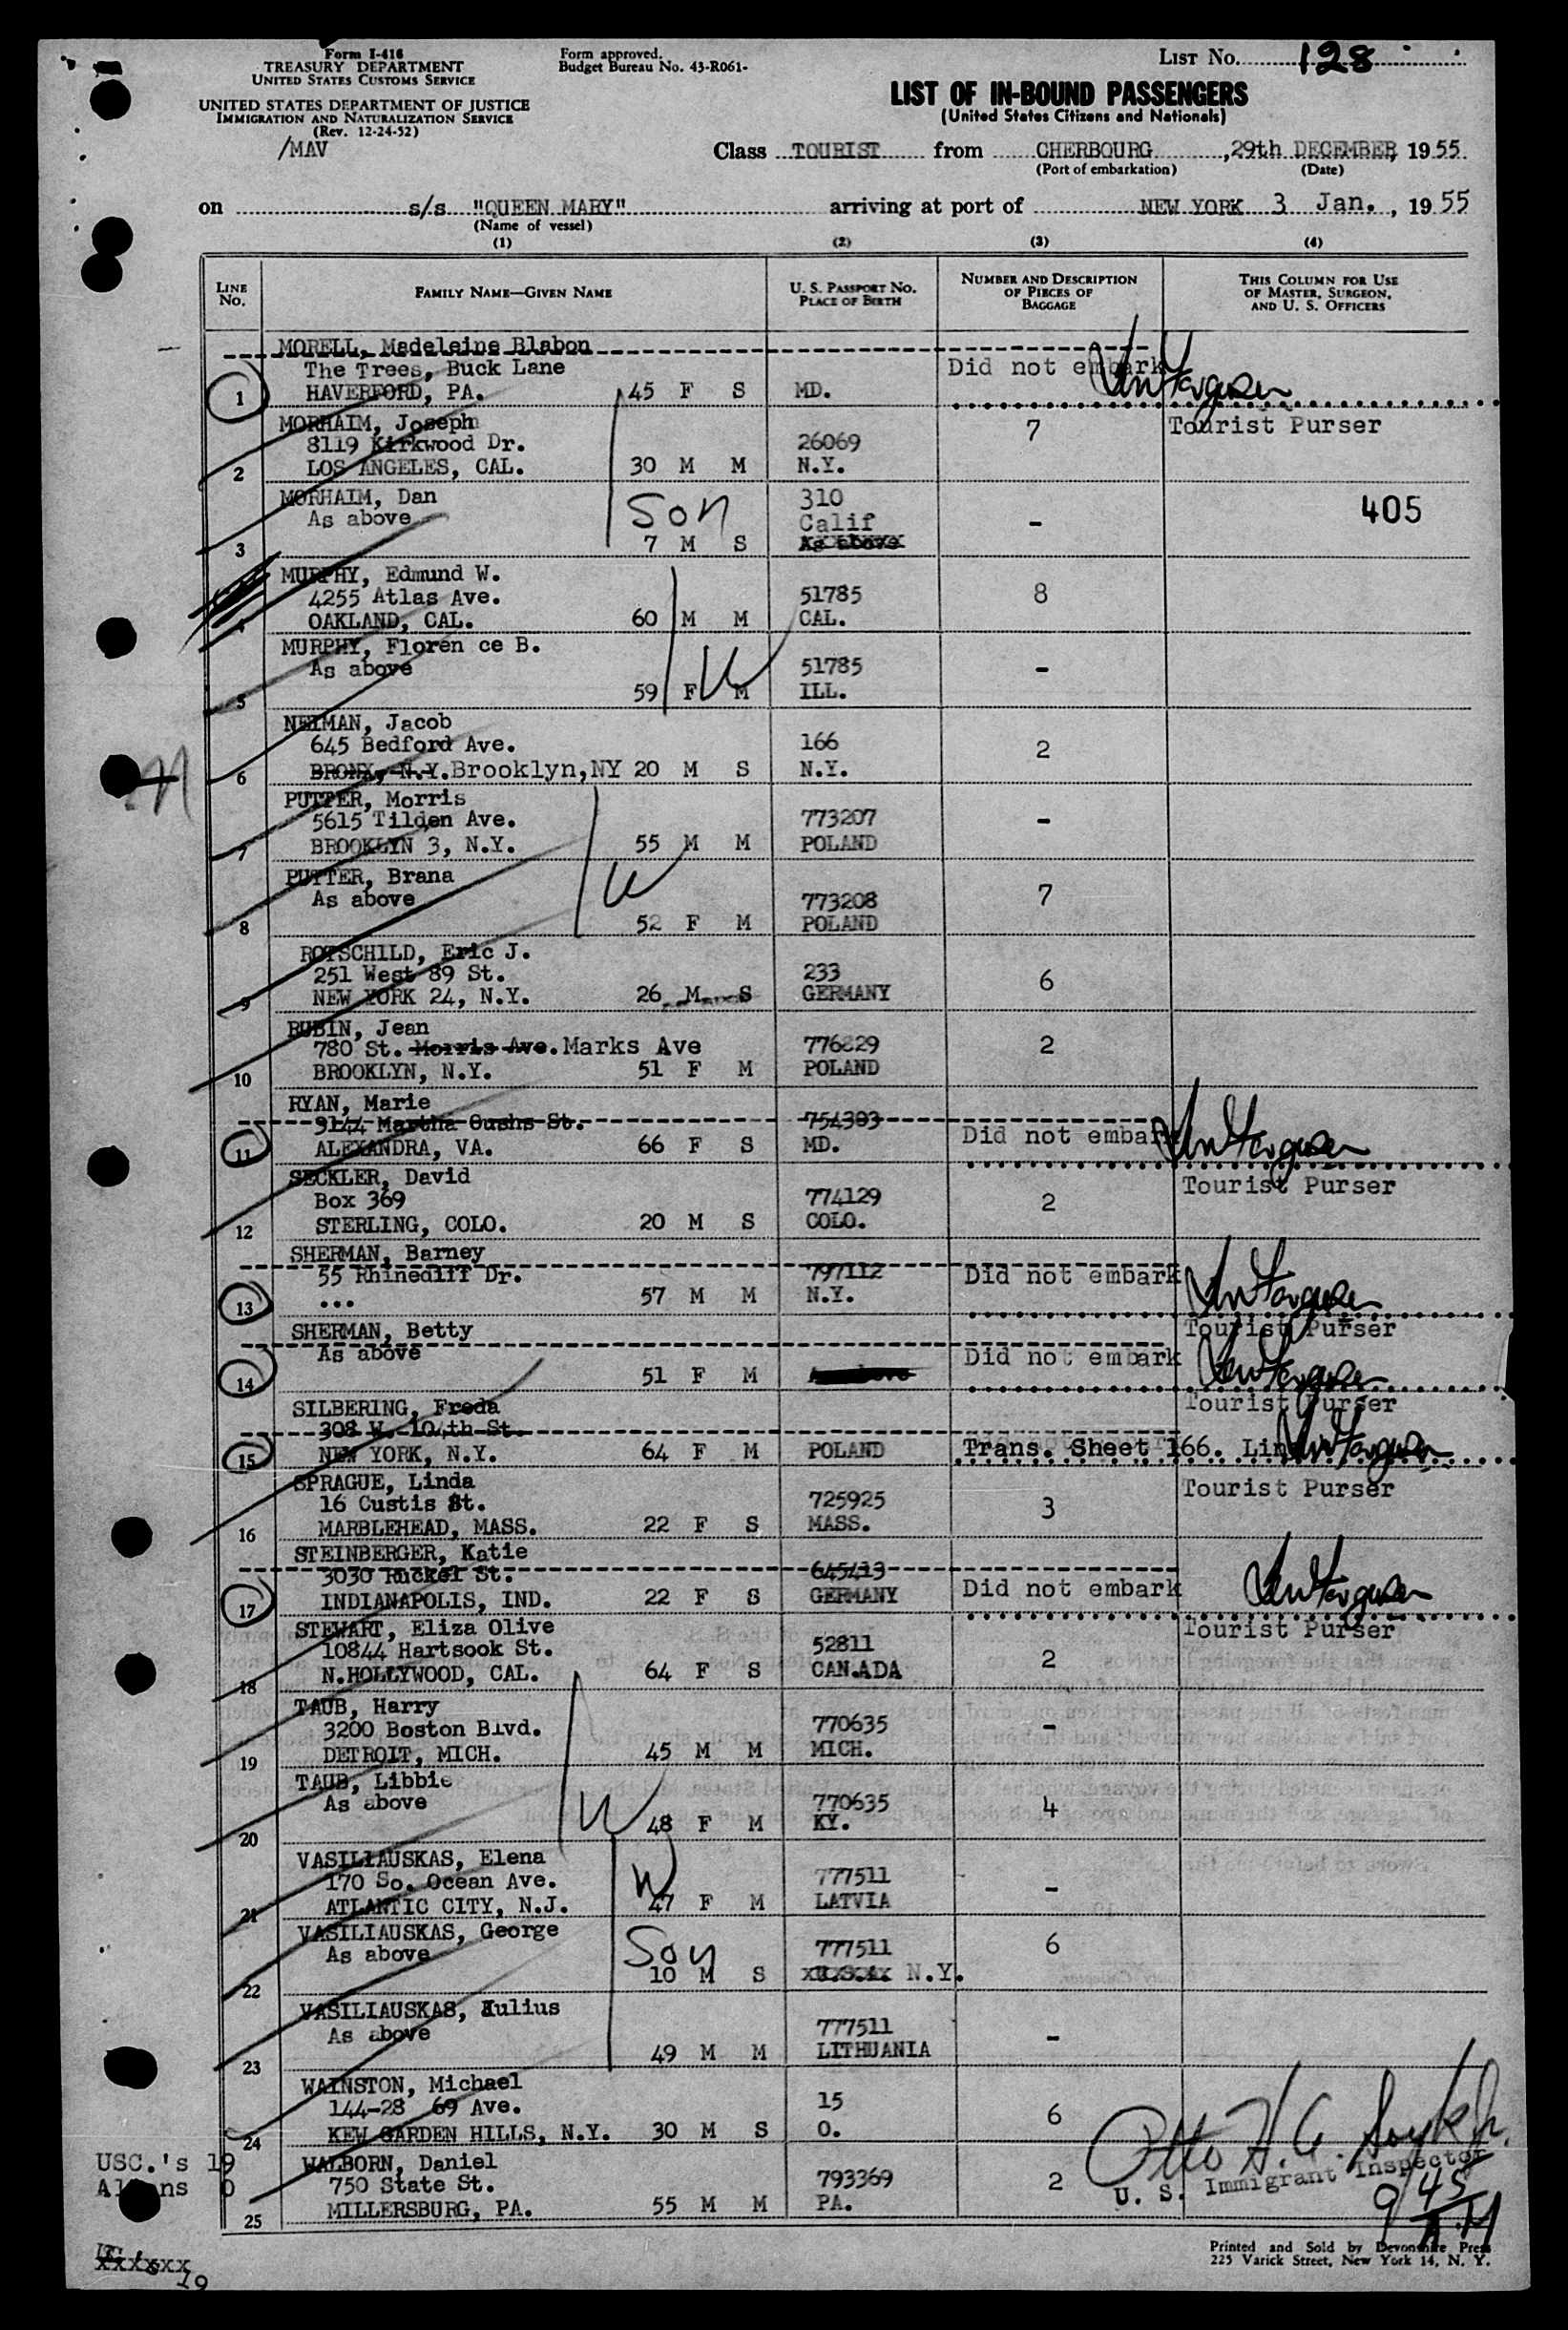 Form I-416
TREASURY DEPARTMENT
UNITED STATES CUSTOMS SERVICE
UNITED STATES DEPARTMENT OF JUSTICE
IMMIGRATION AND NATURALIZATION SERVICE
(Rev. 12-24-52)
/MAV
Form approved.
Budget Bureau No. 43-R061-
LIST No. 128
LIST OF IN-BOUND PASSENGERS
(United States Citizens and Nationals)
Class TOURIST from CHERBOURG, 29th DECEMBER, 1955
(Port of embarkation) (Date)
on s/s "QUEEN MARY" arriving at port of NEW YORK 3 Jan., 1955
(Name of vessel)
(1) (2) (3) (4)
LINE No. FAMILY NAME—GIVEN NAME U. S. PASSPORT No. PLACE OF BIRTH NUMBER AND DESCRIPTION OF PIECES OF BAGGAGE THIS COLUMN FOR USE OF MASTER, SURGEON, AND U. S. OFFICERS
MORELL, Madeleine Blabon
The Trees, Buck Lane Did not embark
1 HAVERFORD, PA. 45 F S MD.
MORHAIM, Joseph 7 Tourist Purser
8119 Kirkwood Dr. 26069
2 LOS ANGELES, CAL. 30 M M N.Y.
MORHAIM, Dan Son 310 405
As above Calif -
3 7 M S As above
MURPHY, Edmund W.
4255 Atlas Ave. 51785 8
4 OAKLAND, CAL. 60 M M CAL.
MURPHY, Floren ce B.
As above W 51785 -
5 59 F M ILL.
NEIMAN, Jacob
645 Bedford Ave. 166 2
6 BRONX, N.Y. Brooklyn,NY 20 M S N.Y.
PUTTER, Morris
5615 Tilden Ave. 773207 -
7 BROOKLYN 3, N.Y. 55 M M POLAND
PUTTER, Brana
As above W 773208 7
8 52 F M POLAND
ROTSCHILD, Eric J.
251 West 89 St. 233 6
9 NEW YORK 24, N.Y. 26 M S GERMANY
RUBIN, Jean
780 St. Morris Ave. Marks Ave 776829 2
10 BROOKLYN, N.Y. 51 F M POLAND
RYAN, Marie
9144 Martha Cushs St. 754303 Did not embark
11 ALEXANDRA, VA. 66 F S MD.
SECKLER, David Tourist Purser
Box 369 774129 2
12 STERLING, COLO. 20 M S COLO.
SHERMAN, Barney
55 Rhinecliff Dr. 797112 Did not embark
13 ... 57 M M N.Y.
SHERMAN, Betty Tourist Purser
As above Did not embark
14 51 F M
SILBERING, Freda Tourist Purser
308 W. 104th St.
15 NEW YORK, N.Y. 64 F M POLAND Trans. Sheet 166.
SPRAGUE, Linda Tourist Purser
16 Custis St. 725925 3
16 MARBLEHEAD, MASS. 22 F S MASS.
STEINBERGER, Katie
3030 Ruckel St. 645413 Did not embark
17 INDIANAPOLIS, IND. 22 F S GERMANY
STEWART, Eliza Olive Tourist Purser
10844 Hartsook St. 52811 2
18 N.HOLLYWOOD, CAL. 64 F S CANADA
TAUB, Harry
3200 Boston Blvd. 770635 -
19 DETROIT, MICH. 45 M M MICH.
TAUB, Libbie
As above W 770635 4
20 48 F M KY.
VASILIAUSKAS, Elena
170 So. Ocean Ave. W 777511 -
21 ATLANTIC CITY, N.J. 47 F M LATVIA
VASILIAUSKAS, George
As above Son 777511 6
22 10 M S U.S.A. N.Y.
VASILIAUSKAS, Julius
As above 777511 -
23 49 M M LITHUANIA
WAINSTON, Michael
144-28 69 Ave. 15 6
24 KEW GARDEN HILLS, N.Y. 30 M S O.
WALBORN, Daniel
750 State St. 793369 2
25 MILLERSBURG, PA. 55 M M PA.
U. S. Immigrant Inspector
9 45 A.M
USC.'s 19
Aliens 0
19
Printed and Sold by Devonshire Press
225 Varick Street, New York 14, N. Y.